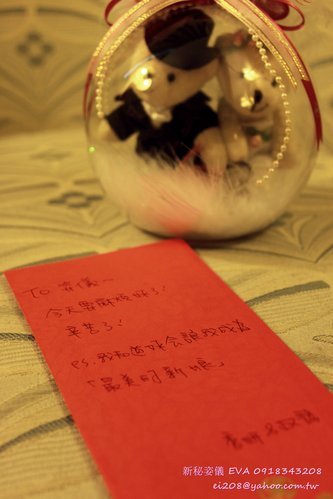 To 姿儀~
今天真的麻煩妳了!
辛苦了!
ps.我知道妳會讓我成為
「最美的新娘」
新秘姿儀 EVA 0918343208
ei208@yahoo.com.tw